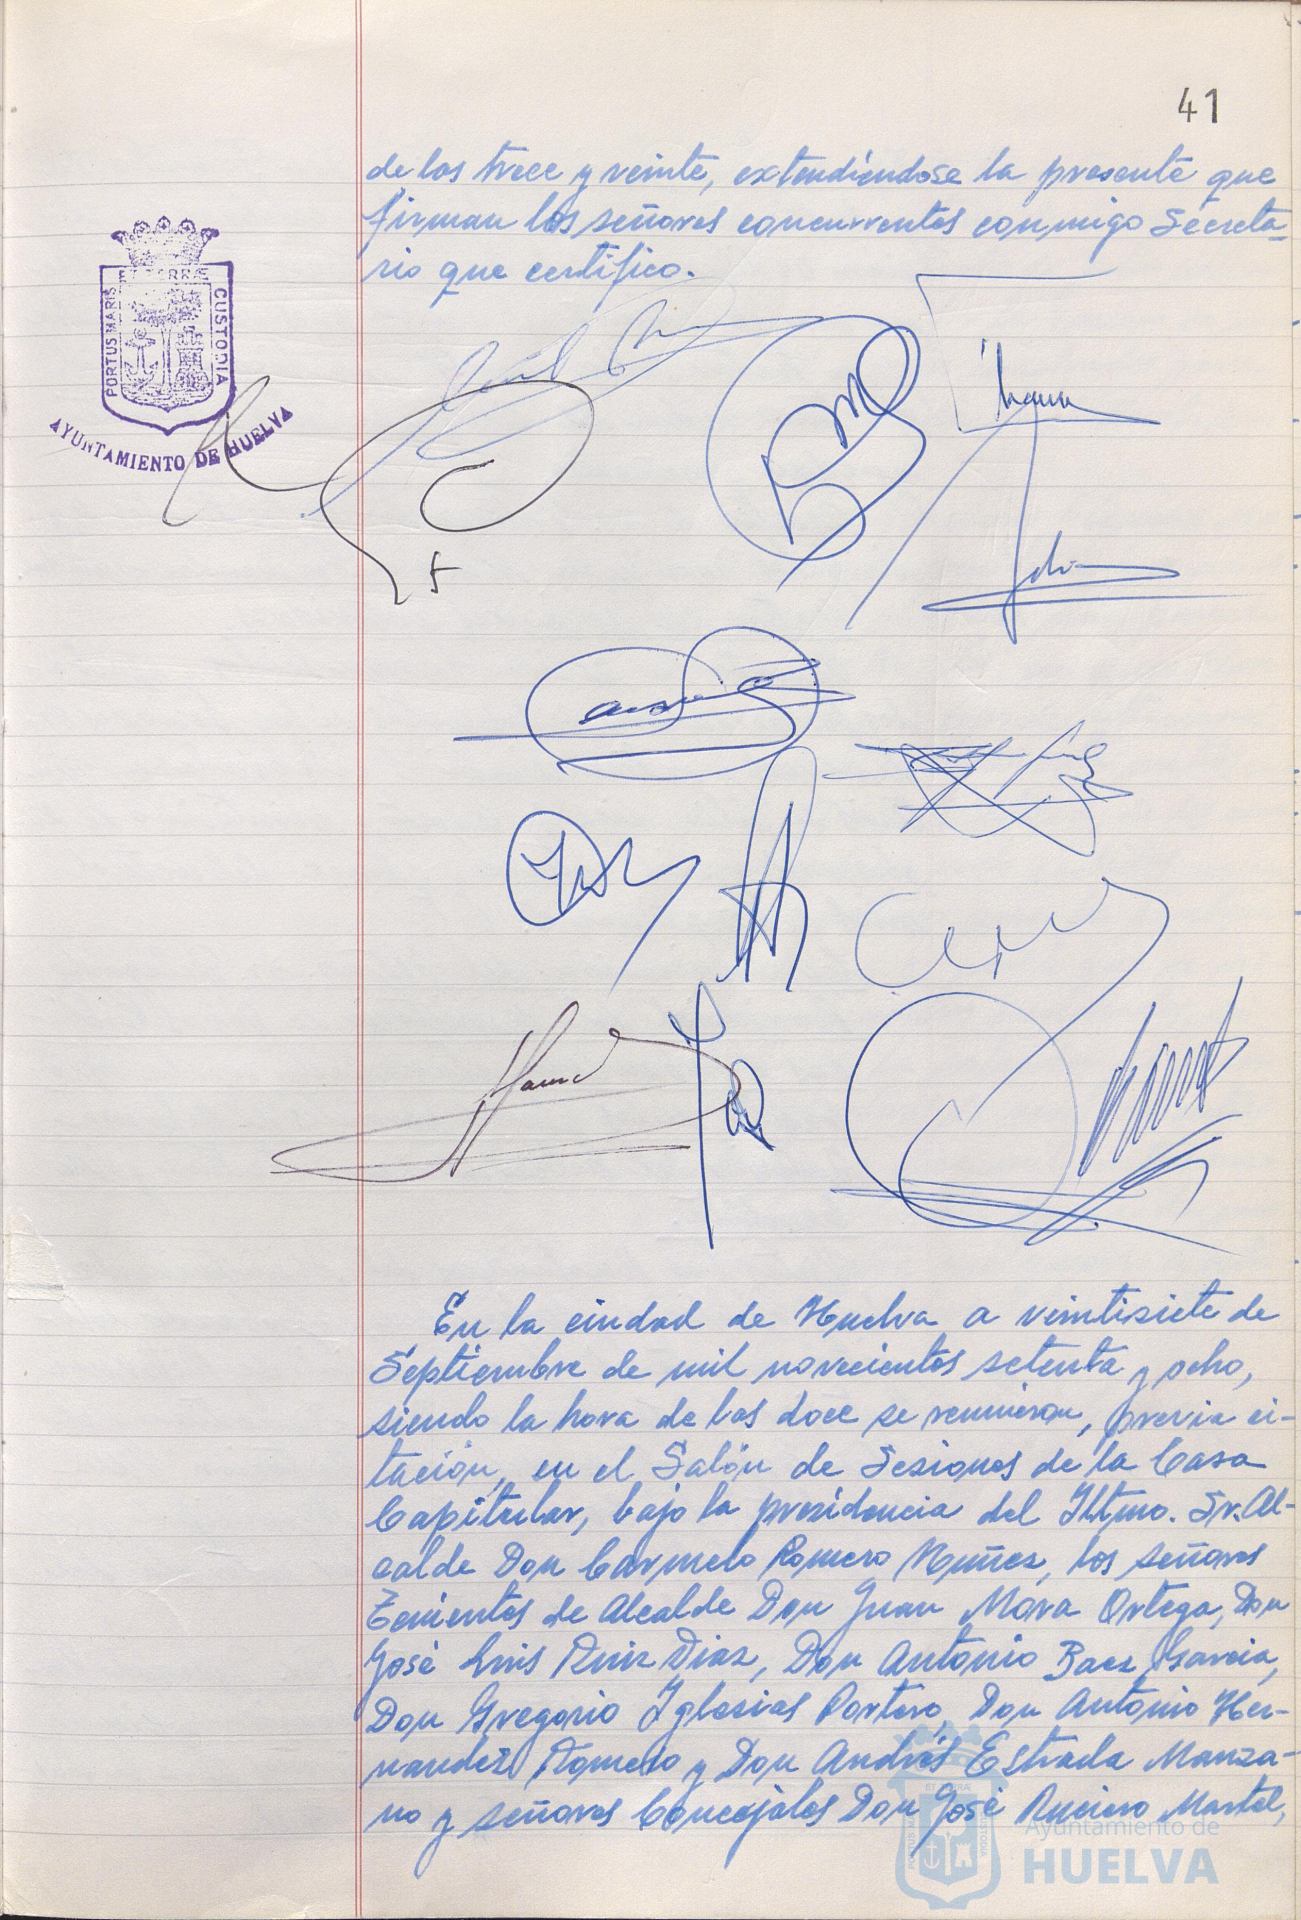 41
de las trece y veinte, extendiéndose la presente que
firman los señores concurrentes conmigo Secreta-
rio que certifico.
PORTUS MARIS
ET TERRÆ
CUSTODIA
AYUNTAMIENTO DE HUELVA
En la ciudad de Huelva a veintisiete de
Septiembre de mil novecientos setenta y ocho,
siendo la hora de las doce se reunieron, previa ci-
tación, en el Salón de Sesiones de la Casa
Capitular, bajo la presidencia del Iltmo. Sr. Al-
calde Don Carmelo Romero Nuñez, los señores
Tenientes de Alcalde Don Juan Mora Ortega, Don
José Luis Ruiz Diaz, Don Antonio Baez Garcia,
Don Gregorio Iglesias Portero, Don Antonio Her-
nandez Romero y Don Andrés Estrada Manza-
no y señores Concejales Don José Martel,
Ayuntamiento de
HUELVA